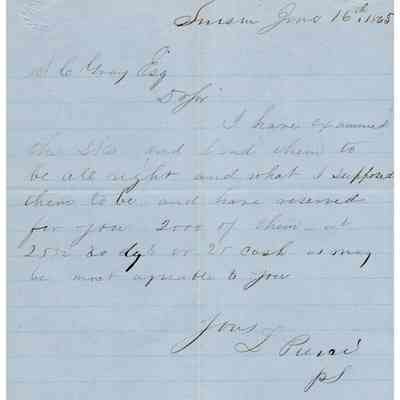 June 16th, 1865
Gray Esq
D Sir
I have examined
the and find them to
be all right and what I supposed
them to be and have reserved
for you 2000 of them at
or 25 cash as may
be most agreeable to you
Yours